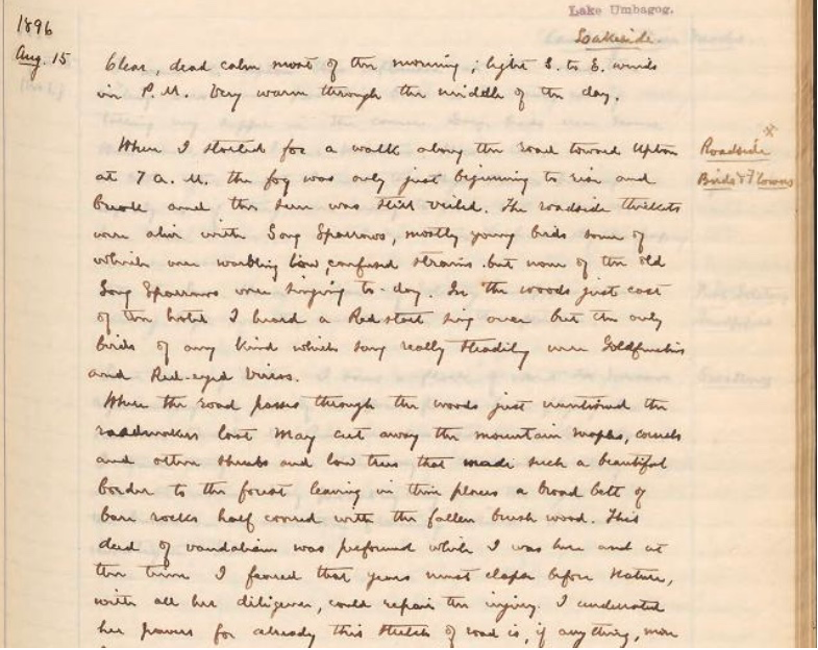 Lake Umbagog.
Lakeside.
1896
Aug. 15
Clear, dead calm most of the morning; light S. to E. winds
in P. M. Very warm through the middle of the day.
Roadside
Birds & Flowers
When I started for a walk along the road toward Upton
at 7 A. M. the fog was only just beginning to rise and
break and the sun was still veiled. The roadside thickets
were alive with Song Sparrows, mostly young birds some of
which were warbling low, confused strains but none of the old
Song Sparrows were singing to-day. In the woods just east
of the hotel I heard a Redstart sing once but the only
birds of any kind which sang really steadily were Goldfinches
and Red-eyed Vireos.
Where the road passes through the woods just mentioned the
roadmakers last May cut away the mountain maples, cornels
and other shrubs and low trees that made such a beautiful
border to the forest leaving in their places a broad belt of
bare rocks half covered with the fallen brush wood. This
deed of vandalism was performed while I was here and at
the time I feared that years must elapse before Nature,
with all her diligence, could repair the injury. I underrated
her powers for already this stretch of road is, if anything, more